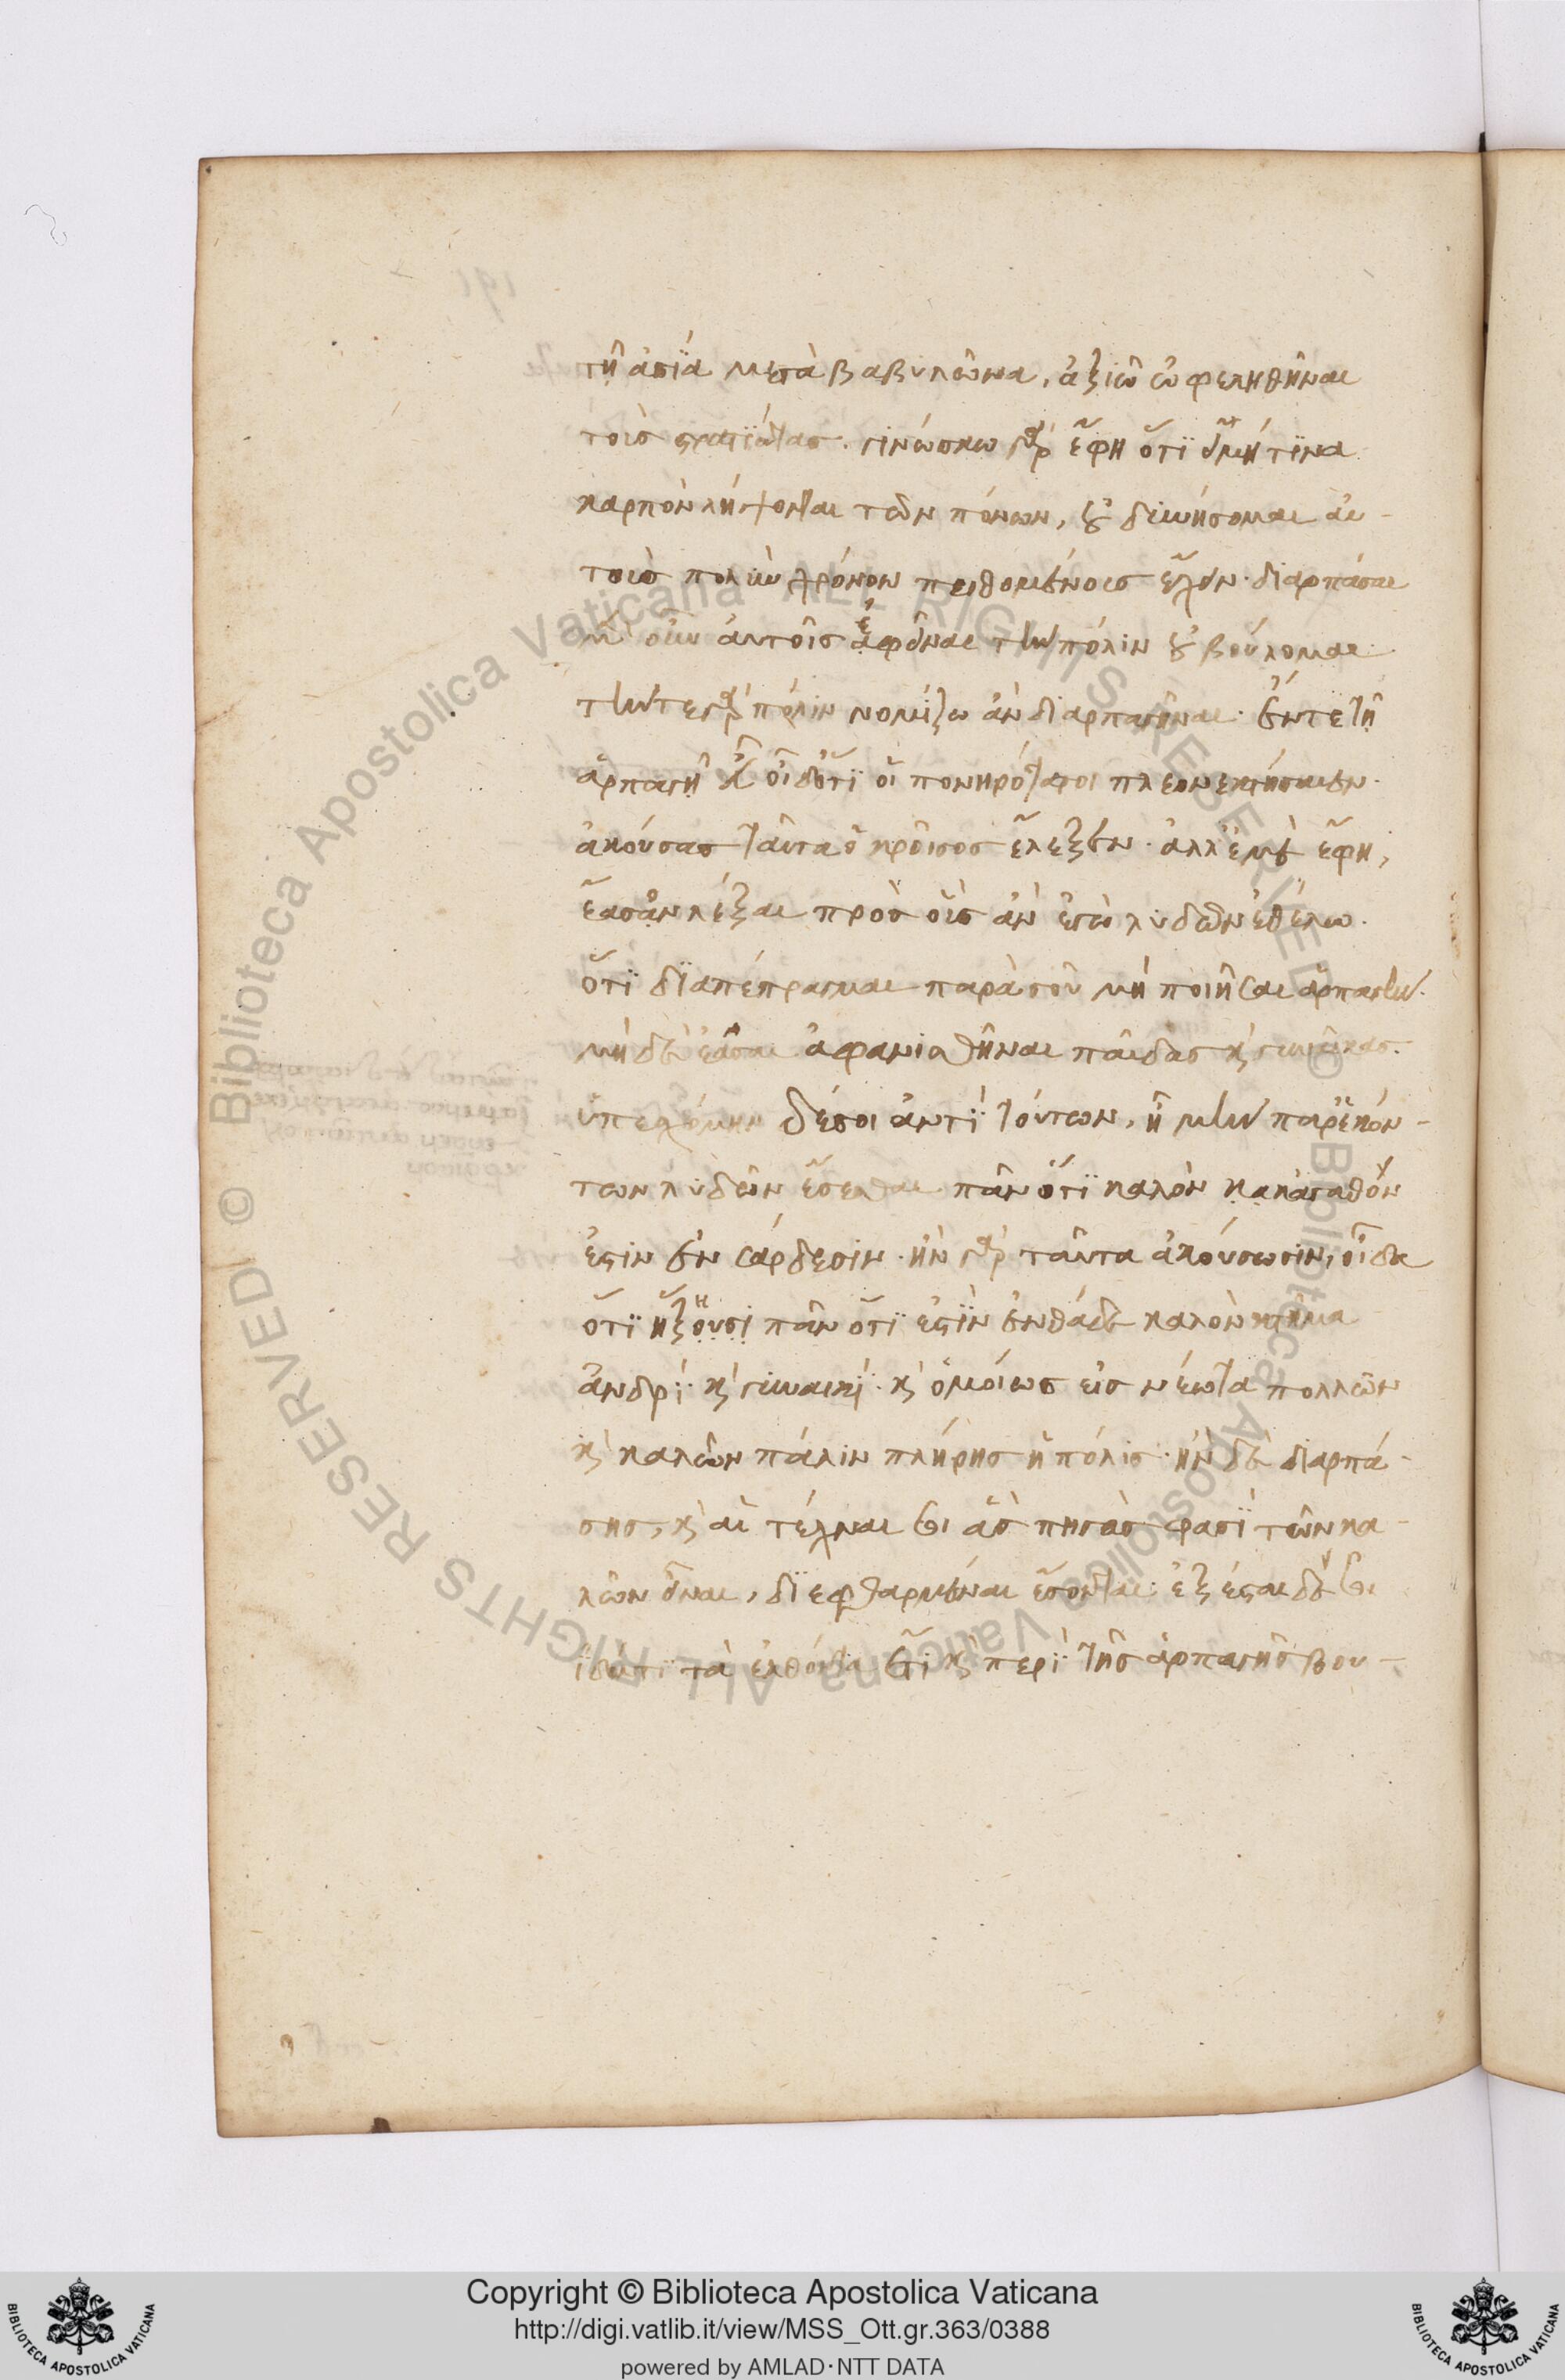 τῇ ἀσίᾳ μετὰ βαβυλῶνα, ἀξιῶ ὠφεληθῆναι
τοὺς στρατιώτας. γινώσκω γὰρ ἔφη ὅτι εἰ μή τινα
καρπὸν λήψονται τῶν πόνων, οὐ δυνήσομαι αὐ-
τοὺς πολὺν χρόνον πειθομένους ἔχειν. διαρπάσαι
μὲν οὖν αὐτοῖς ἐφεῖναι τὴν πόλιν οὐ βούλομαι.
τήν τε γὰρ πόλιν νομίζω ἂν διαρπαγῆναι. ἔν τε τῇ
ἁρπαγῇ εὖ οἶδ ὅτι οἱ πονηρότατοι πλεονεκτήσαιεν.
ἀκούσας ταῦτα ὁ κροῖσος ἔλεξεν. ἀλλ ἐμὲ ἔφη,
ἔασον λέξαι πρὸς οὓς ἂν ἐγὼ λυδῶν ἐθέλω.
ὅτι διαπέπραγμαι παρὰ σοῦ μὴ ποιῆσαι ἁρπαγὴν.
μηδὲ ἐᾶσαι ἀφανισθῆναι παῖδας καὶ γυναῖκας.
ὑπεσχόμην δέ σοι ἀντὶ τούτων, ἦ μὴν παρ ἑκόν-
των λυδῶν ἔσεσθαι πᾶν ὅτι καλὸν κἀγαθόν
ἐστιν ἐν σάρδεσιν. ἢν γὰρ ταῦτα ἀκούσωσιν, οἶδα
ὅτι ἥξουσι πᾶν ὅτι ἐστὶν ἐνθάδε καλὸν κτῆμα
ἀνδρί. καὶ γυναικί. καὶ ὁμοίως εἰς νέωτα πολλῶν
καὶ καλῶν πάλιν πλήρης ἡ πόλις. ἢν δὲ διαρπά-
σῃς, καὶ αἱ τέχναι σοι ἃς πηγάς φασὶ τῶν κα-
λῶν εἶναι, διεφθαρμέναι ἔσονται. ἐξέσται δέ σοι
ἰδόντι τὰ ἐλθόντα ἔτι καὶ περὶ τῆς ἁρπαγῆς βου-
Copyright © Biblioteca Apostolica Vaticana
http://digi.vatlib.it/view/MSS_Ott.gr.363/0388
powered by AMLAD·NTT DATA